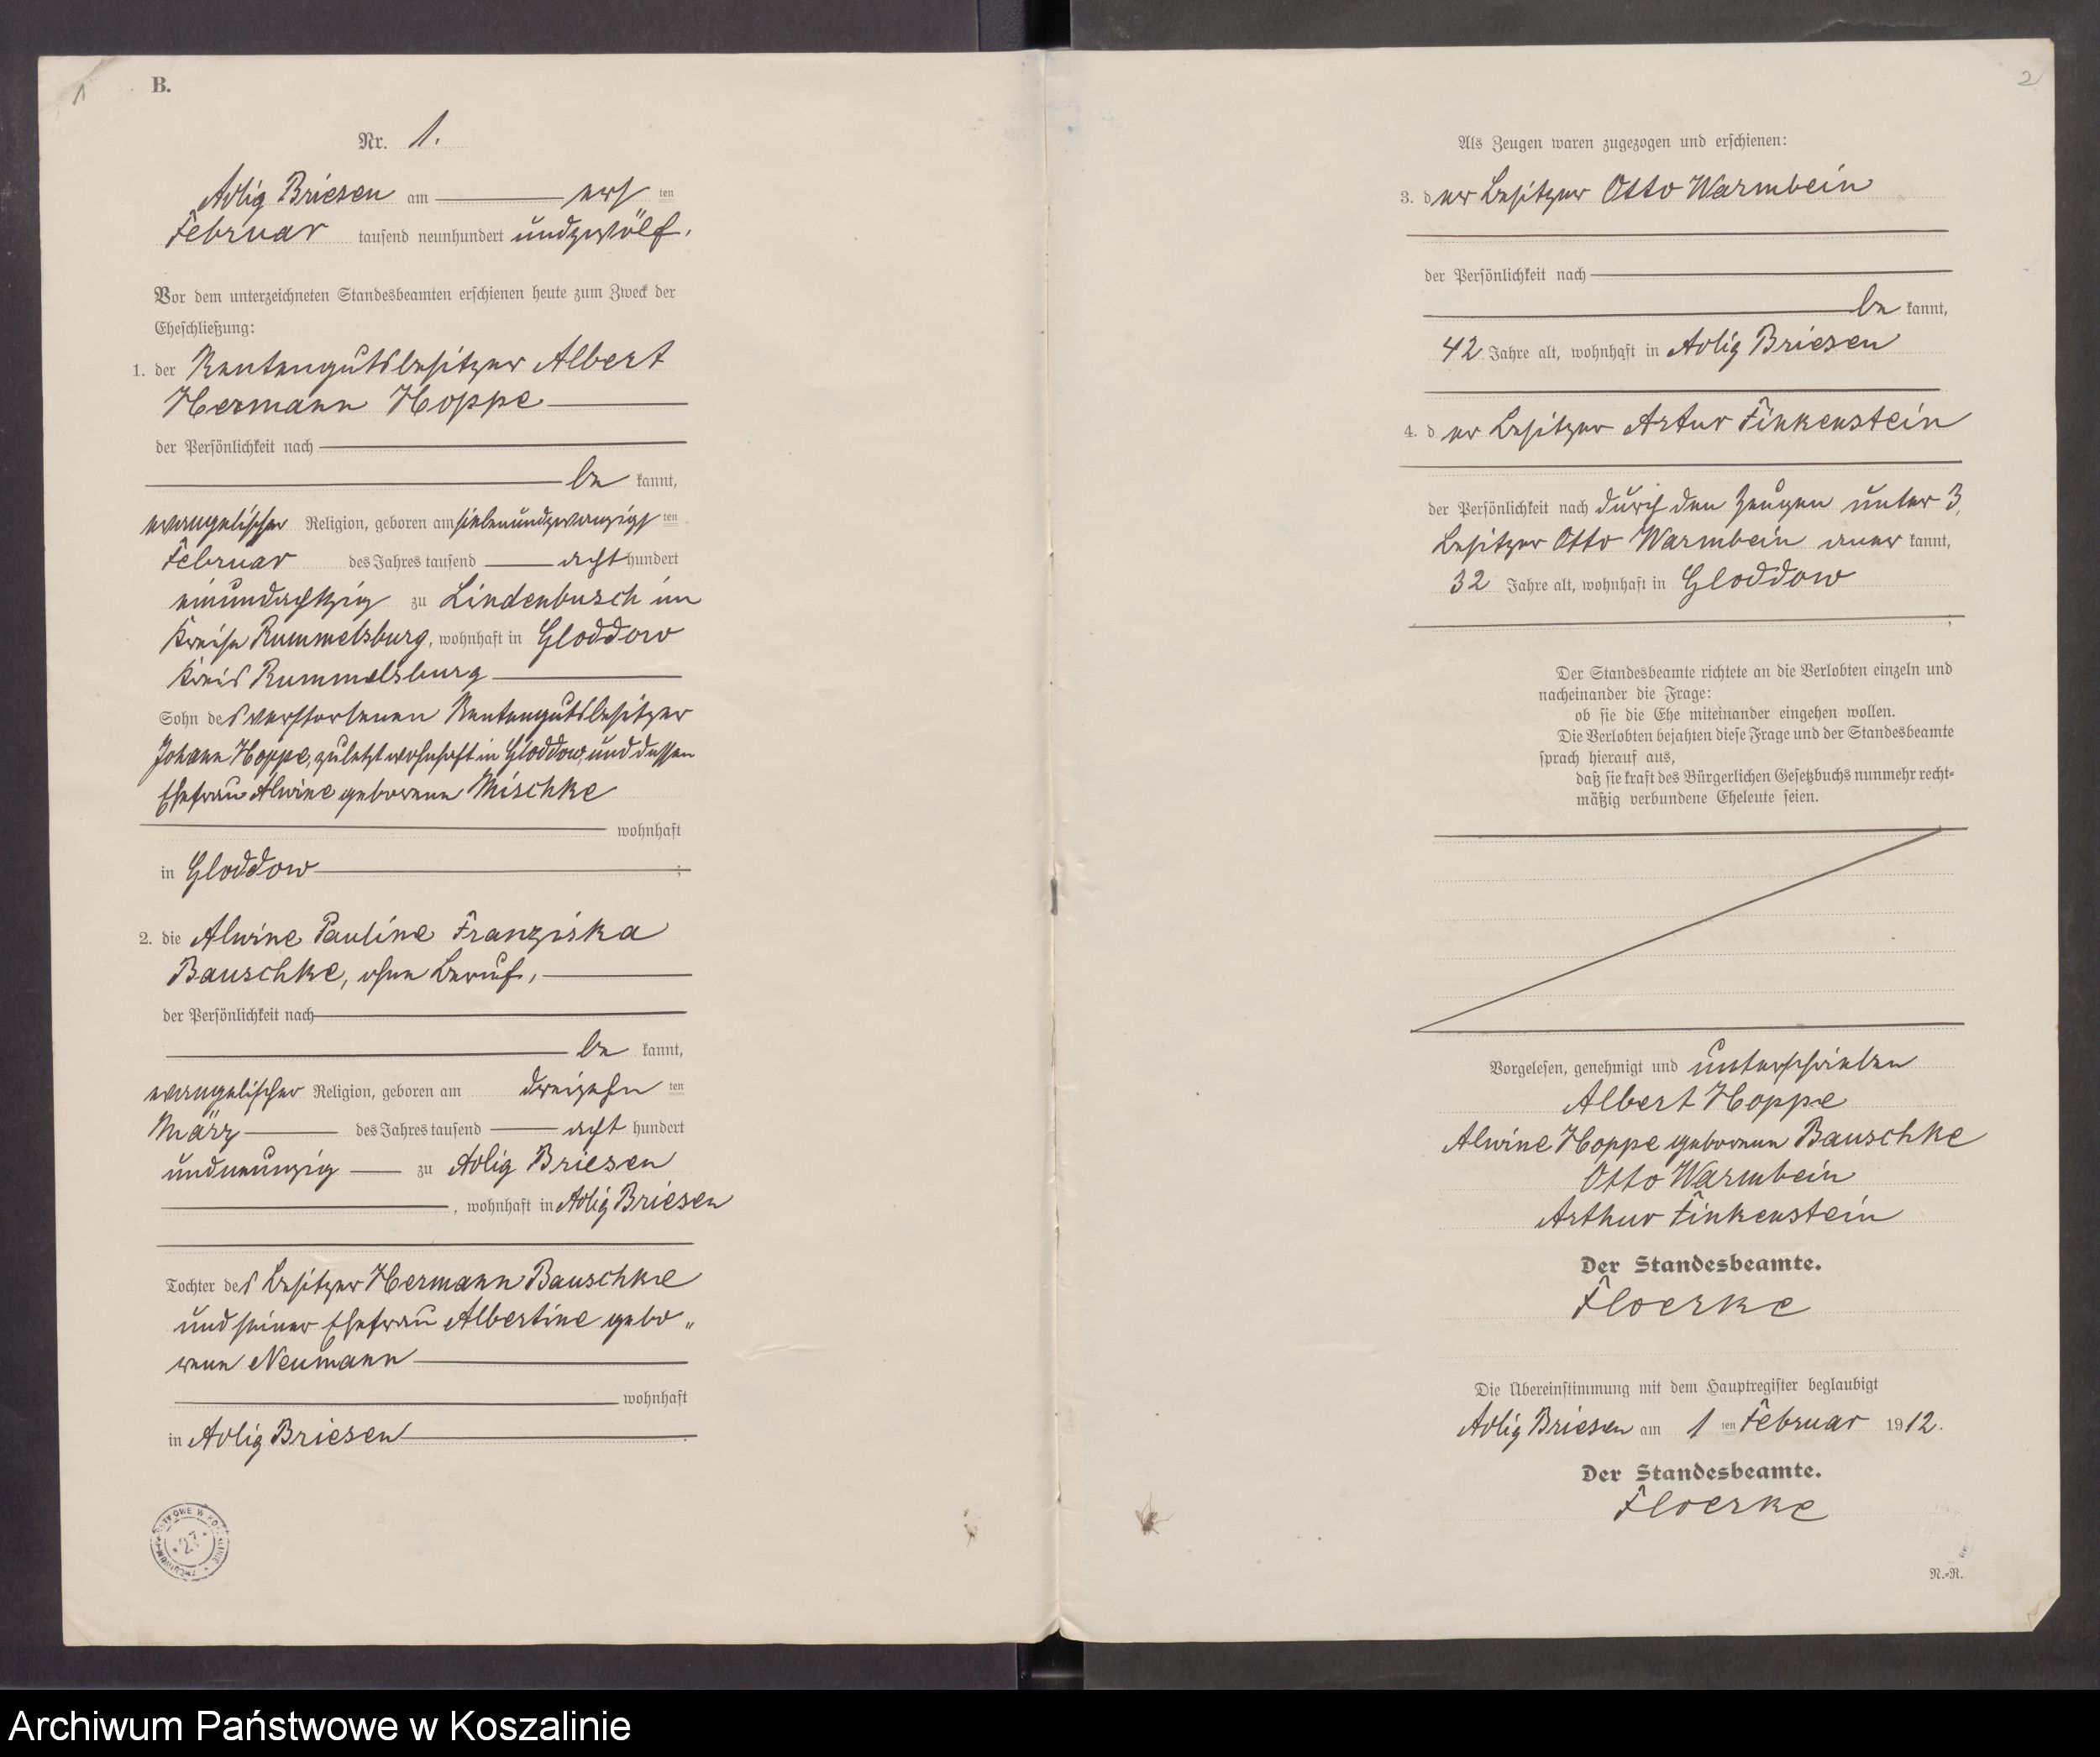 1
B.
Nr. 1.
Adlig Briesen am ersten
Februar tausend neunhundert undzwölf.
Vor dem unterzeichneten Standesbeamten erschienen heute zum Zweck der
Eheschließung:
1. der Rentengutsbesitzer Albert
Hermann Hoppe
der Persönlichkeit nach
be kannt,
evangelischer Religion, geboren am siebenundzwanzigsten
Februar des Jahres tausend acht hundert
einundachtzig zu Lindenbusch im
Kreise Rummelsburg, wohnhaft in Gloddow
Kreis Rummelsburg
Sohn des verstorbenen Rentengutsbesitzer
Johann Hoppe, zuletzt wohnhaft in Gloddow, und dessen
Ehefrau Alwine geborenen Mischke
wohnhaft
in Gloddow ;
2. die Alwine Pauline Franziska
Bauschke, ohne Beruf,
der Persönlichkeit nach
be kannt,
evangelischer Religion, geboren am dreizehnten
März des Jahres tausend acht hundert
undneunzig zu Adlig Briesen
, wohnhaft in Adlig Briesen
Tochter des Besitzer Hermann Bauschke
und seiner Ehefrau Albertine gebo„
renen Neumann
wohnhaft
in Adlig Briesen .
27
2
Als Zeugen waren zugezogen und erschienen:
3. der Besitzer Otto Warmbein
der Persönlichkeit nach
be kannt,
42 Jahre alt, wohnhaft in Adlig Briesen
4. der Besitzer Artur Finkenstein
der Persönlichkeit nach durch den Zeugen unter 3,
Besitzer Otto Warmbein aner kannt,
32 Jahre alt, wohnhaft in Gloddow
Der Standesbeamte richtete an die Verlobten einzeln und
nacheinander die Frage:
ob sie die Ehe miteinander eingehen wollen.
Die Verlobten bejahten diese Frage und der Standesbeamte
sprach hierauf aus,
daß sie kraft des Bürgerlichen Gesetzbuchs nunmehr recht-
mäßig verbundene Eheleute seien.
Vorgelesen, genehmigt und unterschrieben
Albert Hoppe
Alwine Hoppe geborenen Bauschke
Otto Warmbein
Arthur Finkenstein
Der Standesbeamte.
Floerke
Die Übereinstimmung mit dem Hauptregister beglaubigt
Adlig Briesen am 1 ten Februar 1912.
Der Standesbeamte.
Floerke
N.-R.
Archiwum Państwowe w Koszalinie